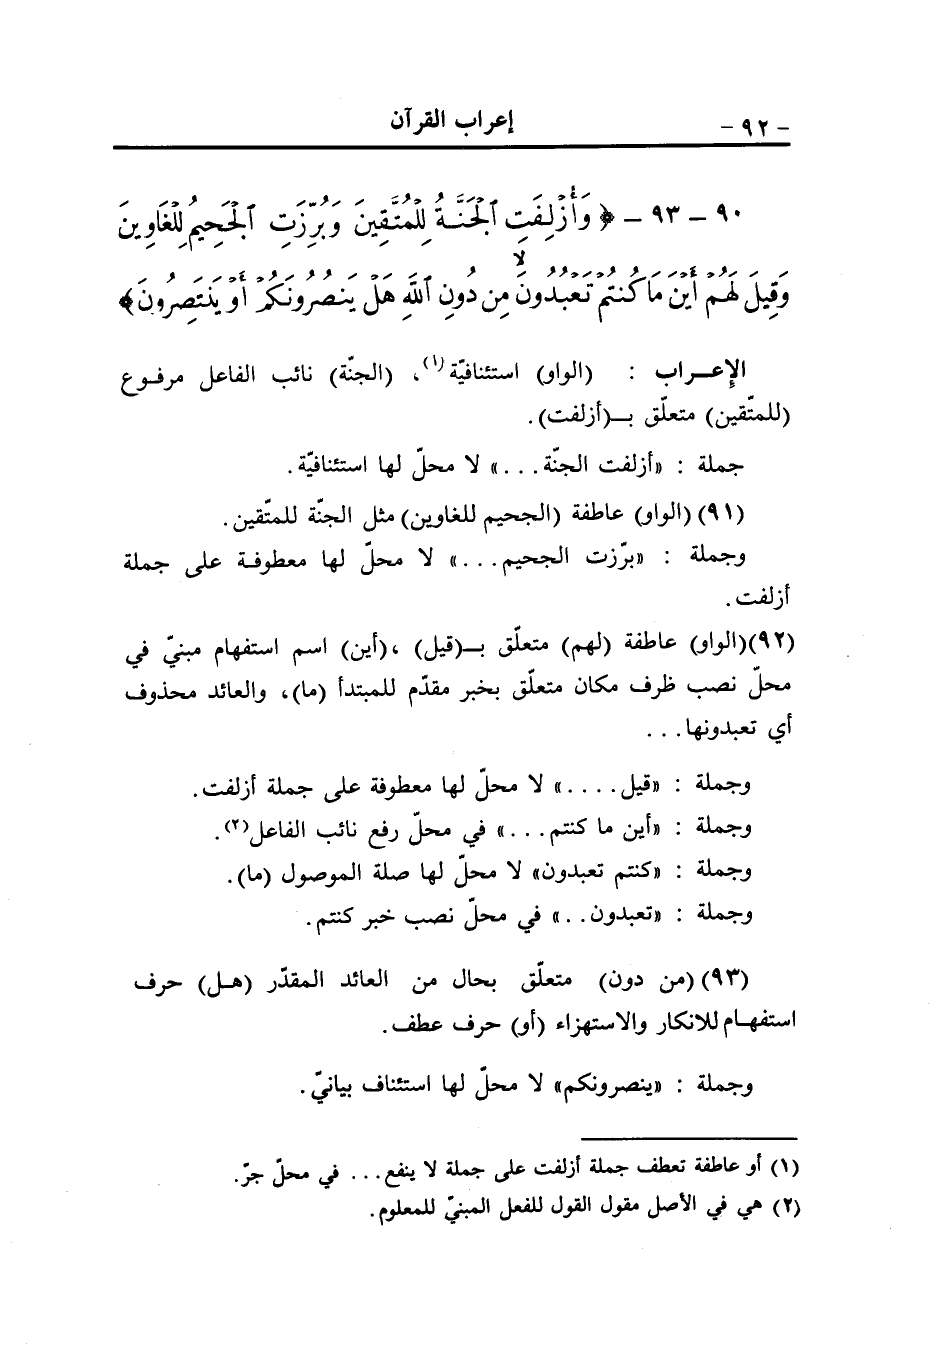 - ٩٢ -
إعراب القرآن
٩٠ - ٩٣ - ﴿ وَأُزْلِفَتِ ٱلْجَنَّةُ لِلْمُتَّقِينَ وَبُرِّزَتِ ٱلْجَحِيمُ لِلْغَاوِينَ
وَقِيلَ لَهُمْ أَيْنَ مَا كُنتُمْ تَعْبُدُونَ ۙ مِن دُونِ ٱللَّهِ هَلْ يَنصُرُونَكُمْ أَوْ يَنتَصِرُونَ﴾
الإعـراب : (الواو) استئنافيّة(١)، (الجنّة) نائب الفاعل مرفـوع
(للمتّقين) متعلّق بـ(أزلفت).
جملة : «أزلفت الجنّة...» لا محلّ لها استئنافيّة.
(٩١) (الواو) عاطفة (الجحيم للغاوين) مثل الجنّة للمتّقين.
وجملة : «برّزت الجحيم...» لا محلّ لها معطوفـة على جملة
أزلفت.
(٩٢)(الواو) عاطفة (لهم) متعلّق بـ(قيل) ،(أين) اسم استفهام مبنيّ في
محلّ نصب ظرف مكان متعلّق بخبر مقدّم للمبتدأ (ما)، والعائد محذوف
أي تعبدونها...
وجملة : «قيل....» لا محلّ لها معطوفة على جملة أزلفت.
وجملة : «أين ما كنتم...» في محلّ رفع نائب الفاعل(٢).
وجملة : «كنتم تعبدون» لا محلّ لها صلة الموصول (ما).
وجملة : «تعبدون..» في محلّ نصب خبر كنتم.
(٩٣) (من دون) متعلّق بحال من العائد المقدّر (هـل) حرف
استفهـام للانكار والاستهزاء (أو) حرف عطف.
وجملة : «ينصرونكم» لا محلّ لها استئناف بيانيّ.
(١) أو عاطفة تعطف جملة أزلفت على جملة لا ينفع... في محلّ جرّ.
(٢) هي في الأصل مقول القول للفعل المبنيّ للمعلوم.